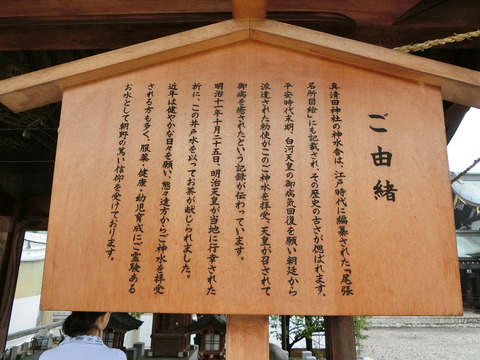 ご由緒
真清田神社の神水舎は、江戸時代に編纂された「尾張
名所図絵」にも記載され、その歴史の古さが偲ばれます。
平安時代末期、白河天皇の御病気回復を願い朝廷から
派遣された勅使がこのご神水を拝受、天皇が召されて
御病を癒されたという記録が伝わっています。
明治十一年十月二十五日、明治天皇が当地に行幸された
折に、この井戸水を以ってお茶が献じられました。
近年は健やかな日々を願い、態々遠方からご神水を拝受
される方も多く、服薬・健康・幼児育成にご霊験ある
お水として朝野の篤い信仰を受けております。